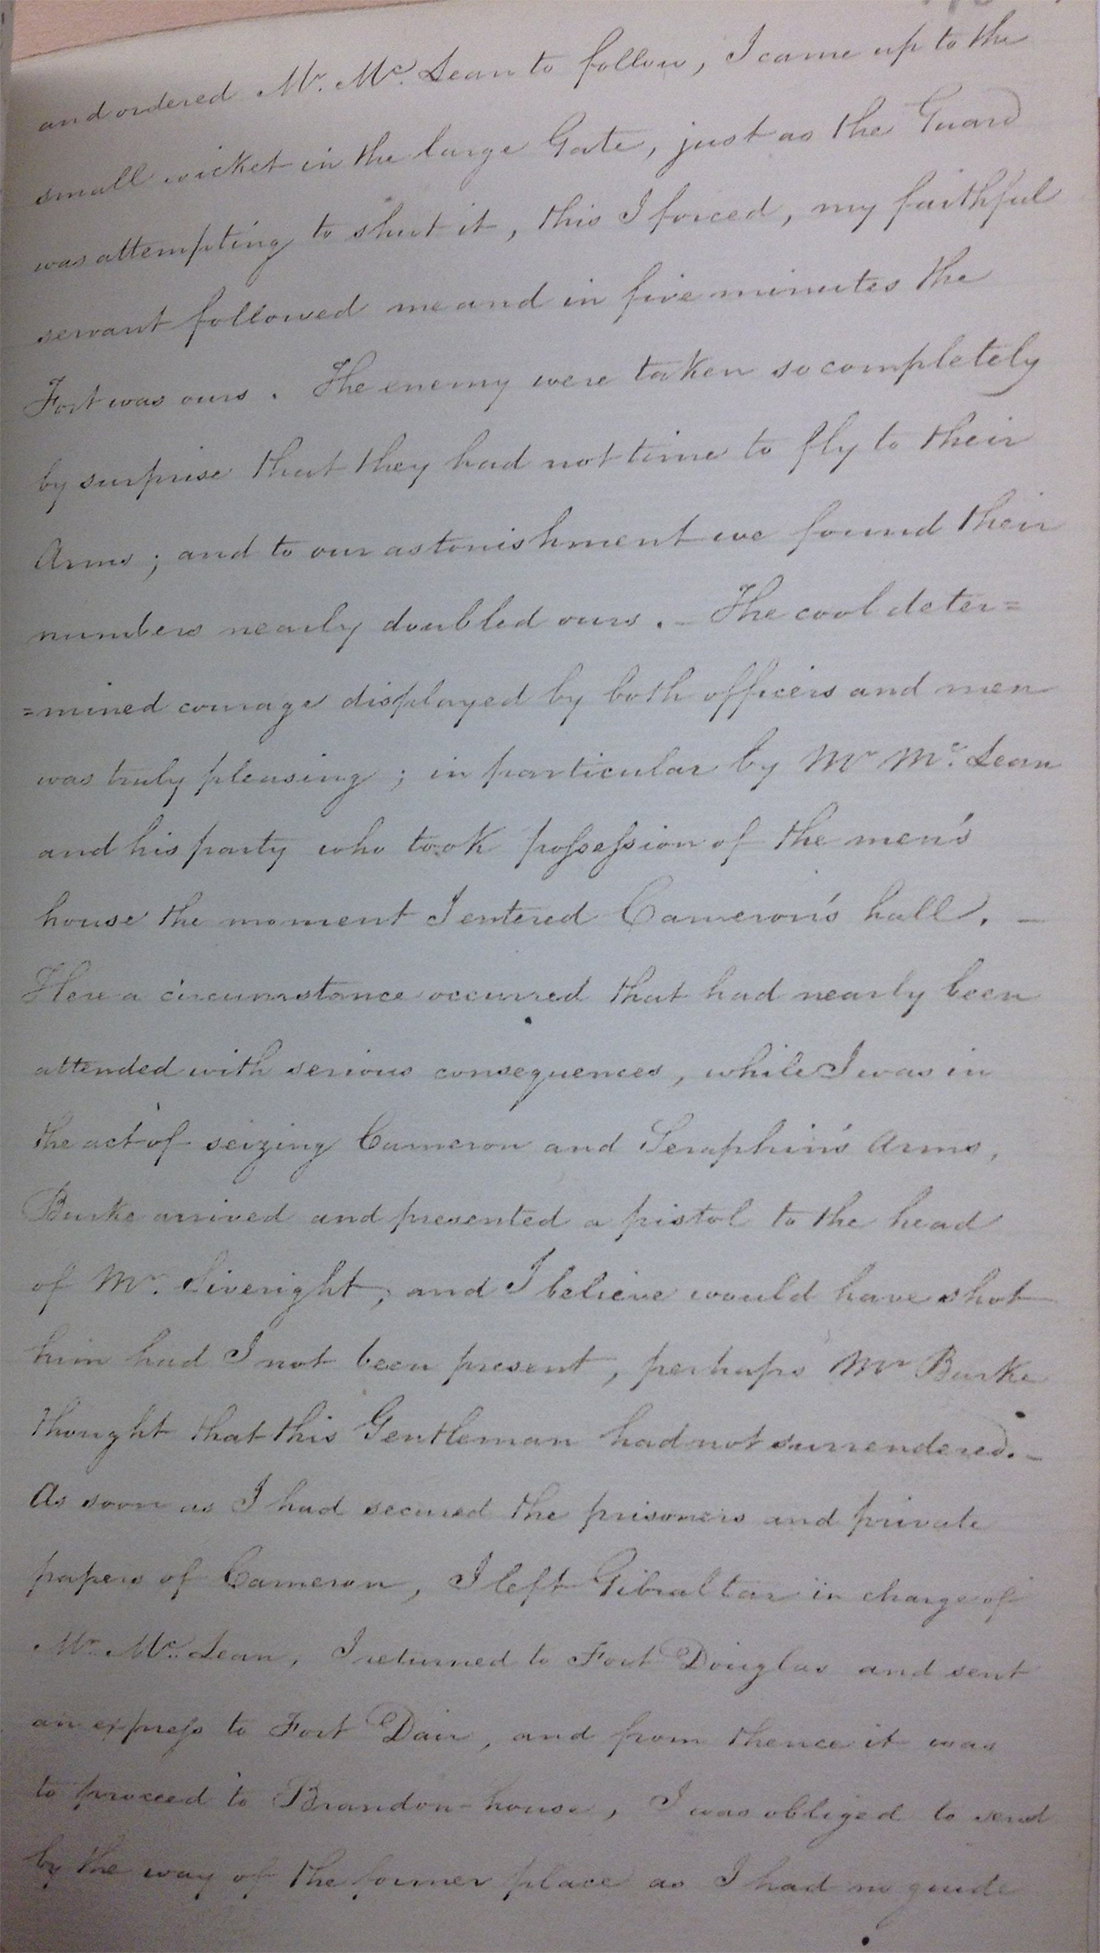 and ordered Mr. Mc. Lean to follow, I came up to the
small wicket in the large Gate, just as the Guard
was attempting to shut it, this I forced, my faithful
servant followed me and in five minutes the
Fort was ours. The enemy were taken so completely
by surprise that they had not time to fly to their
Arms; and to our astonishment we found their
numbers nearly doubled ours. – The cool deter=
=mined courage displayed by both officers and men
was truly pleasing; in particular by Mr Mc. Lean
and his party who took poſseſsion of the men's
house the moment I entered Cameron's hall. –
Here a circumstance occurred that had nearly been
attended with serious consequences, while I was in
the act of seizing Cameron and Seraphin's Arms,
Burke arrived and presented a pistol to the head
of Mr. Siveright, and I believe would have shot
him had I not been present, perhaps Mr Burke
thought that this Gentleman had not surrendered. –
As soon as I had secured the prisoners and private
papers of Cameron, I left Gibraltar in charge of
Mr. Mc. Lean, I returned to Fort Douglas and sent
an expreſs to Fort Dair, and from thence it was
to proceed to Brandon-house, I was obliged to send
by the way of the former place as I had no guide